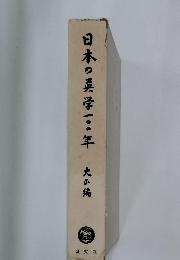 日本の英学一〇〇年
大正編
研究社